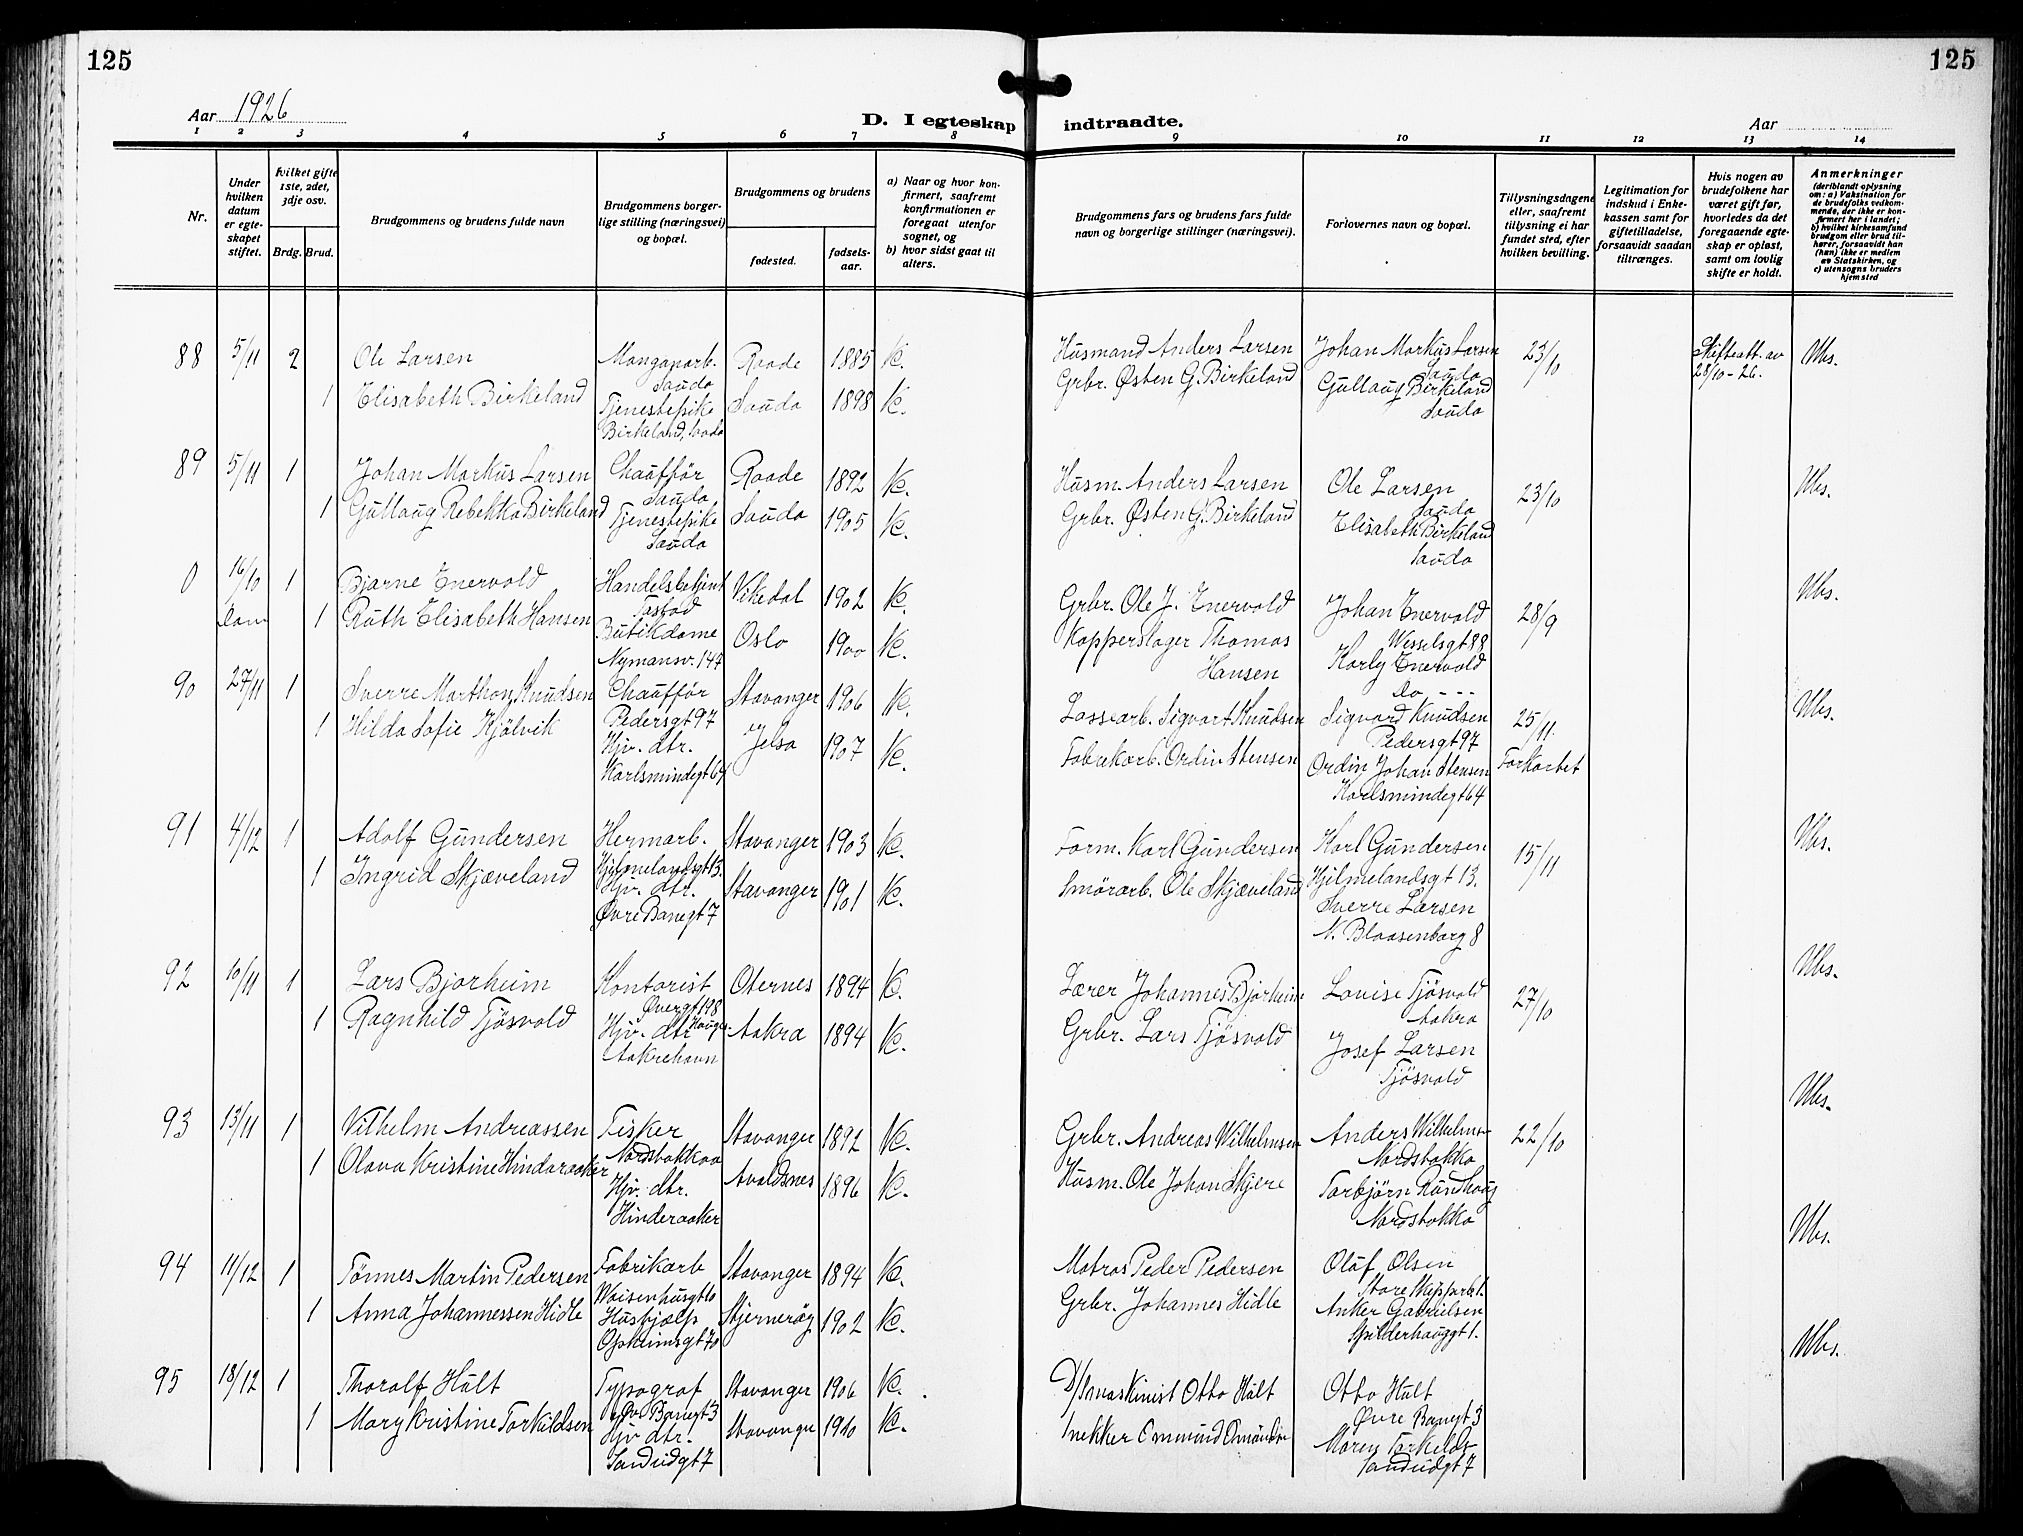 125
125
Aar 1926
D. I egteskap indtraadte.
Aar
1 2 3 4 5 6 7 8 9 10 11 12 13 14
Nr.
Under hvilken datum er egteskapet stiftet.
hvilket gifte 1ste, 2det, 3dje osv.
Brdg. Brud.
Brudgommens og brudens fulde navn
Brudgommens borgerlige stilling (næringsvei) og bopæl.
Brudgommens og brudens
fødested.
fødselsaar.
a) Naar og hvor konfirmert, saafremt konfirmationen er foregaat utenfor sognet, og
b) hvor sidst gaat til alters.
Brudgommens fars og brudens fars fulde navn og borgerlige stillinger (næringsvei).
Forlovernes navn og bopæl.
Tillysningsdagene eller, saafremt tillysning ei har fundet sted, efter hvilken bevilling.
Legitimation for indskud i Enkekassen samt for giftetilladelse, forsaavidt saadan tiltrænges.
Hvis nogen av brudefolkene har været gift før, hvorledes da det foregaaende egteskap er opløst, samt om lovlig skifte er holdt.
Anmerkninger
(deriblandt oplysning om: a) Vaksination for de brudefolks vedkommende, der ikke er konfirmert her i landet; b) hvilket kirkesamfund brudgom eller brud tilhører, forsaavidt han (hun) ikke er medlem av Statskirken, og c) utensogns bruders hjemsted
88 5/11 2 Ole Larsen Manganarb. Sauda Raade 1885 K. Husmand Anders Larsen Johan Markus Larsen Sauda 23/10 Skifteatt. av 28/10-26. Ubs.
1 Elisabeth Birkeland Tjenestepike Birkeland, Sauda Sauda 1898 K. Grbr. Østen G. Birkeland Gullaug Birkeland Sauda
89 5/11 1 Johan Markus Larsen Chauffør Sauda Raade 1892 K. Husm. Anders Larsen Ole Larsen Sauda 23/10 Ubs.
1 Gullaug Rebekka Birkeland Tjenestepike Sauda Sauda 1905 K. Grbr. Østen G. Birkeland Elisabeth Birkeland Sauda
0 16/10 1 Bjarne Enervold Handelsbetjent Tastad Vikedal 1902 K. Grbr. Ole J. Enervold Johan Enervold Wesselsgt 88 28/9 Ubs.
Dom 1 Ruth Elisabeth Hansen Butikdame Nymansv. 147 Oslo 1900 K. Kopperslager Thomas Hansen Karly Enervold Do ---
90 27/11 1 Sverre Marthon Knudsen Chauffør Pedersgt 97 Stavanger 1906 K. Lossearb. Sigvart Knudsen Sigvard Knudsen Pedersgt 97 25/11 Ubs.
1 Hilda Sofie Hjølvik Hjv. dtr. Karlsmindegt 64 Jelsa 1907 K. Fabrikarb. Ordin Stensen Ordin Johan Stensen Karlsmindegt 64 Forkortet
91 4/12 1 Adolf Gundersen Hermarb. Hjelmelandsgt 13. Stavanger 1903 K. Form. Karl Gundersen Karl Gundersen Hjilmelandsgt 13. 15/11 Ubs.
1 Ingrid Skjæveland Hjv. dtr. Øvre Banegt 7 Stavanger 1901 K. Smørarb. Ole Skjæveland Sverre Larsen N. Blaasenborg 8
92 10/11 1 Lars Bjorheim Kontorist Øvregt 198 Hauges. Oternes 1894 K. Lærer Johannes Bjorheim Louise Tjøsvold Aakra 27/10 Ubs.
1 Ragnhild Tjøsvold Hjv. dtr Aakrehavn Aakra 1894 K. Grbr. Lars Tjøsvold Josef Larsen Tjøsvold
93 13/11 1 Vilhelm Andreassen Fisker Nordsbokkaa Stavanger 1892 K. Grbr. Andreas Wilhelmsen Anders Wilhelmsen Nordsbokka 22/10 Ubs.
1 Olava Kristine Hinderaaker Hjv. dtr. Hinderaaker Avaldsnes 1896 K. Husm. Ole Johan Skjere Torbjørn Rundhaug Nordsbokka
94 11/12 1 Tønnes Martin Pedersen Fabrikarb Waisenhusgt 16 Stavanger 1894 K. Matros Peder Pedersen Olaf Olsen Store Skipparb. 1. Ubs.
1 Anna Johannessen Hidle Hushjælp Opheimsgt 70 Stjernerøy 1902 K. Grbr. Johannes Hidle Anker Gabrielsen Spilderhauggt 1.
95 18/12 1 Thoralf Hult Typograf Øv. Banegt 3 Stavanger 1906 K. D/S maskinist Otto Hult Otto Hult Øvre Banegt 3 Ubs.
1 Mary Kristine Torkildsen Hjv dtr. Sandvidgt 7 Stavanger 1910 K. Snekker Ommund Ommundsen Maren Torkilds Sandvidgt 7